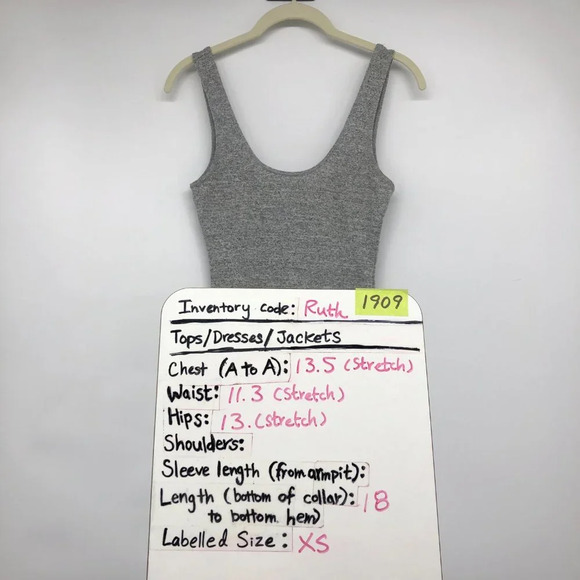 Inventory code: Ruth 1909
Tops/Dresses/Jackets
Chest (A to A): 13.5 (Stretch)
Waist: 11.3 (Stretch)
Hips: 13. (Stretch)
Shoulders:
Sleeve length (from armpit):
Length (bottom of collar): 18
to bottom hem)
Labelled Size: XS